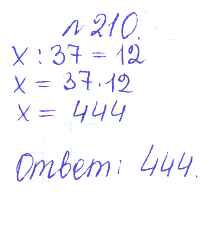 № 210.
x : 37 = 12
x = 37·12
x = 444
Ответ: 444.